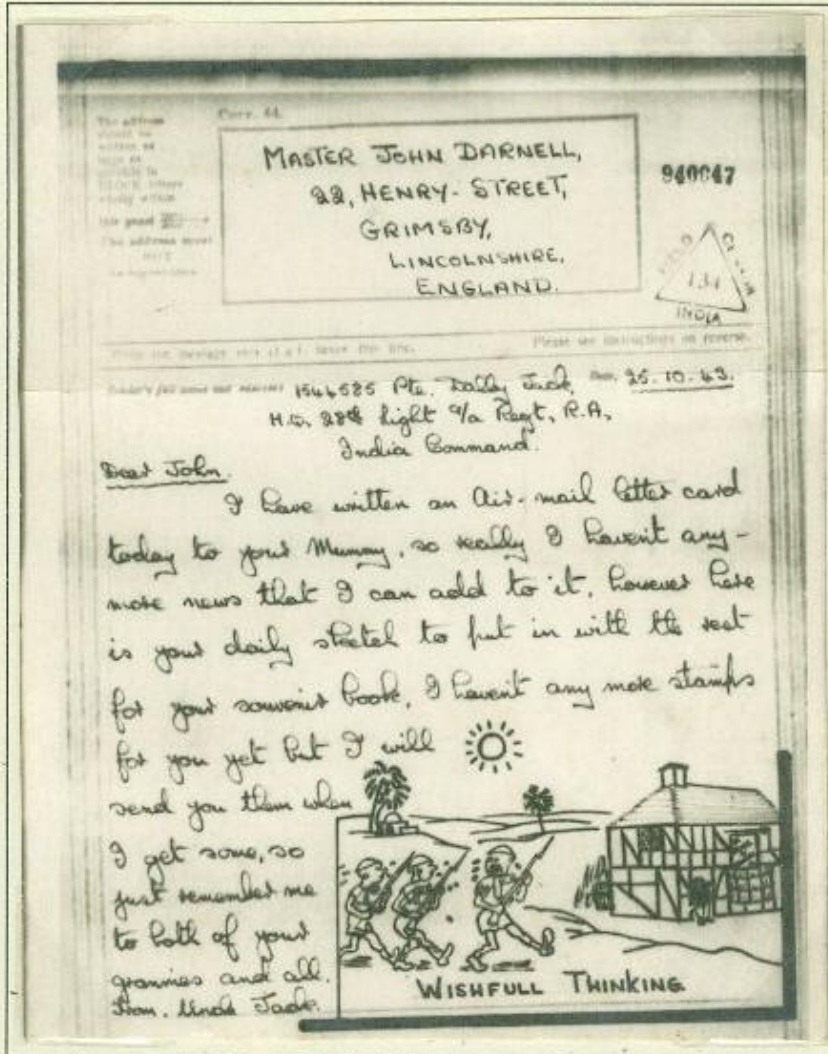 The address
should be
written as
large as
possible in
BLOCK letters
wholly within
this panel
The address must
NOT
MASTER JOHN DARNELL,
22, HENRY-STREET,
GRIMSBY,
LINCOLNSHIRE,
ENGLAND.
940047
FIELD CENSOR
134
INDIA
Please see instructions on reverse.
Sender's full name and address 1546585 Pte. Dally Jack, Date. 25.10.43.
H.Q. 28th Light a/a Regt, R.A,
India Command.
Dear John.
I have written an Air-mail letter card
today to your Mummy, so really I havent any-
more news that I can add to it, however here
is your daily sketch to put in with the rest
for your souvenir book, I havent any more stamps
for you yet but I will
send you them when
I get some, so
just remember me
to both of your
grannies and all.
From. Uncle Jack.
WISHFULL THINKING